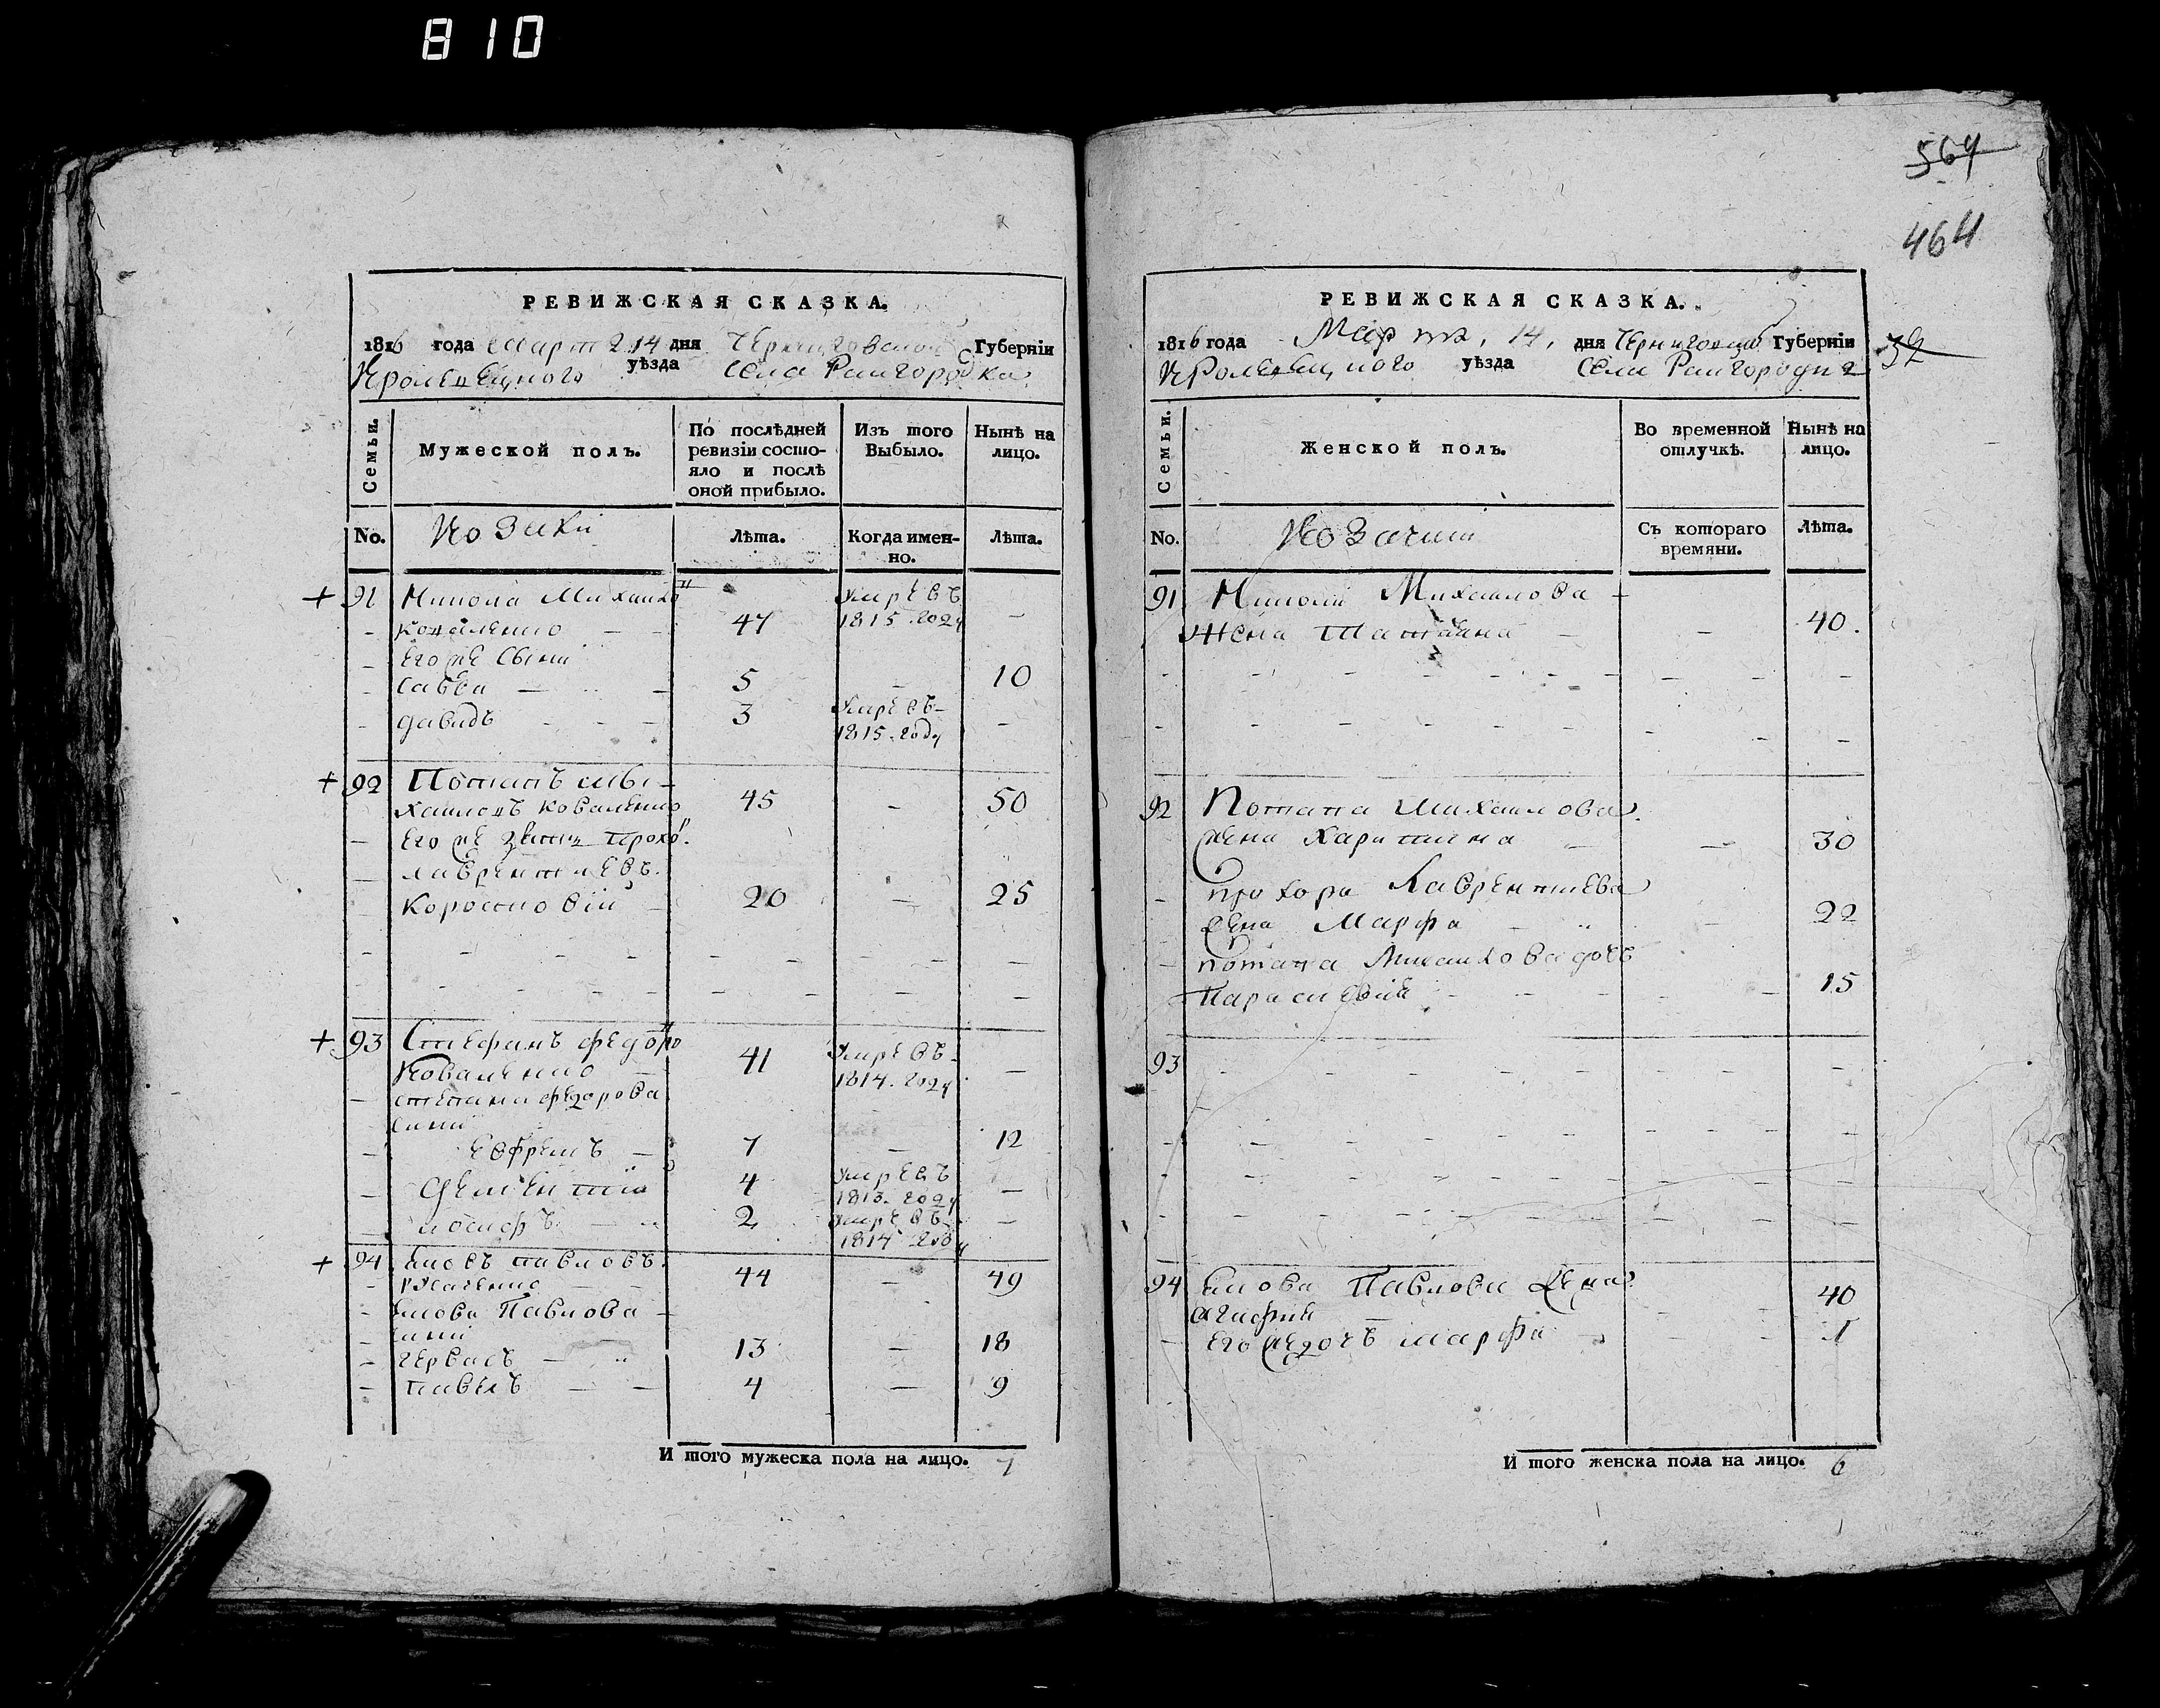 810
564
464
РЕВИЖСКАЯ СКАЗКА.
1816 года Марта 14 дня Черниговской Губерніи
Кролевецкого уѣзда Села Райгородка
Семьи.
Мужеской полъ.
По послѣдней ревизіи состояло и послѣ оной прибыло.
Изъ того Выбыло.
Нынѣ на лицо.
No. Козаки Лѣта. Когда именно. Лѣта.
91 Никола Михайло
Коваленко — 47 Умре въ 1815 году —
Его же сыни
Савва — 5 — 10
Давидъ — 3 Умре въ 1815 году —
92 Потапъ Ми-
хайловъ Коваленко 45 — 50
Его же зять Прохо.
Лаврентиевъ
20 — 25
93 Стефанъ Федоро
Коваленко 41 Умре въ 1814 году —
Степана Федорова
сини
Ефремъ — 7 — 12
Дементий 4 Умре въ 1813 году —
Иосифъ — 2 Умре въ 1814 году —
94 Яковъ Павловъ
44 — 49
Якова Павлова
сини
Гервасъ — 13 — 18
Павелъ — 4 — 9
И того мужеска пола на лицо. 7
РЕВИЖСКАЯ СКАЗКА.
1816 года Марта, 14, дня Губерніи
Кролевецкого уѣзда Села Райгородка
Семьи.
Женской полъ.
Во временной отлучкѣ.
Нынѣ на лицо.
No. Козачки Съ котораго времяни. Лѣта.
91 Николи Михайлова
Жена Татияна — 40.
92 Потапа Михайлова
жена Харитина — 30
Прохора Лаврентиева
жена Марфа — 22
Потапа Михайлова дочь
Параскевия — 15
93
94 Якова Павлова жена
Агафия — 40
Его же дочь Марфа — 1
И того женска пола на лицо. 6